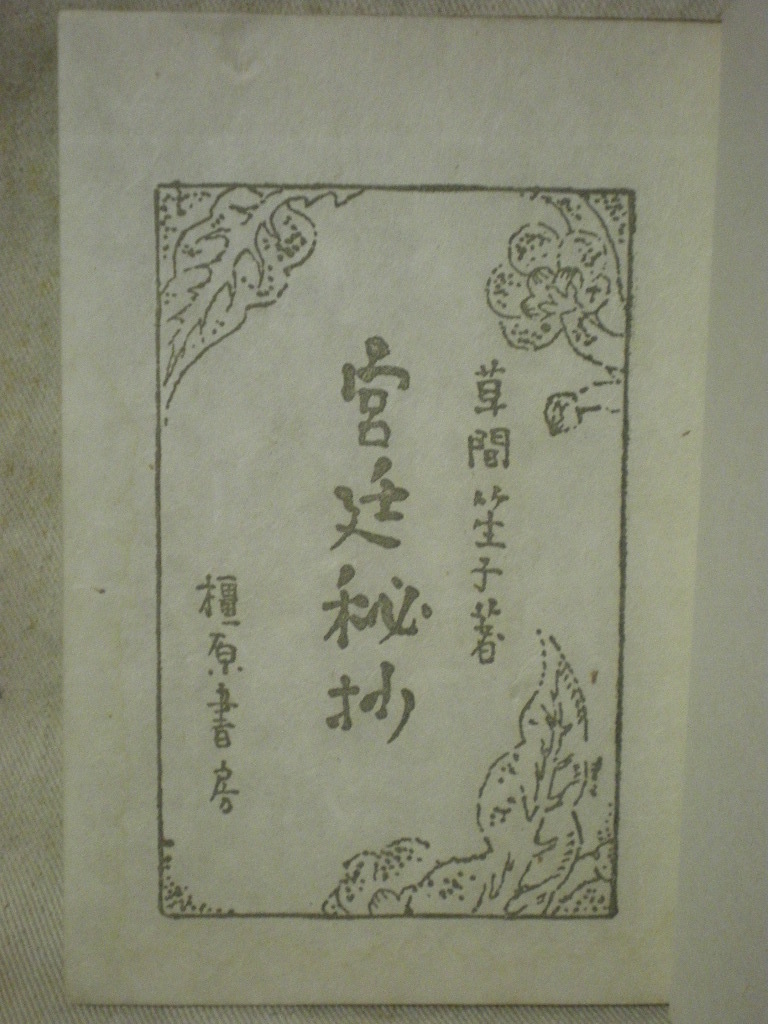 草間笙子著
宮廷秘抄
橿原書房